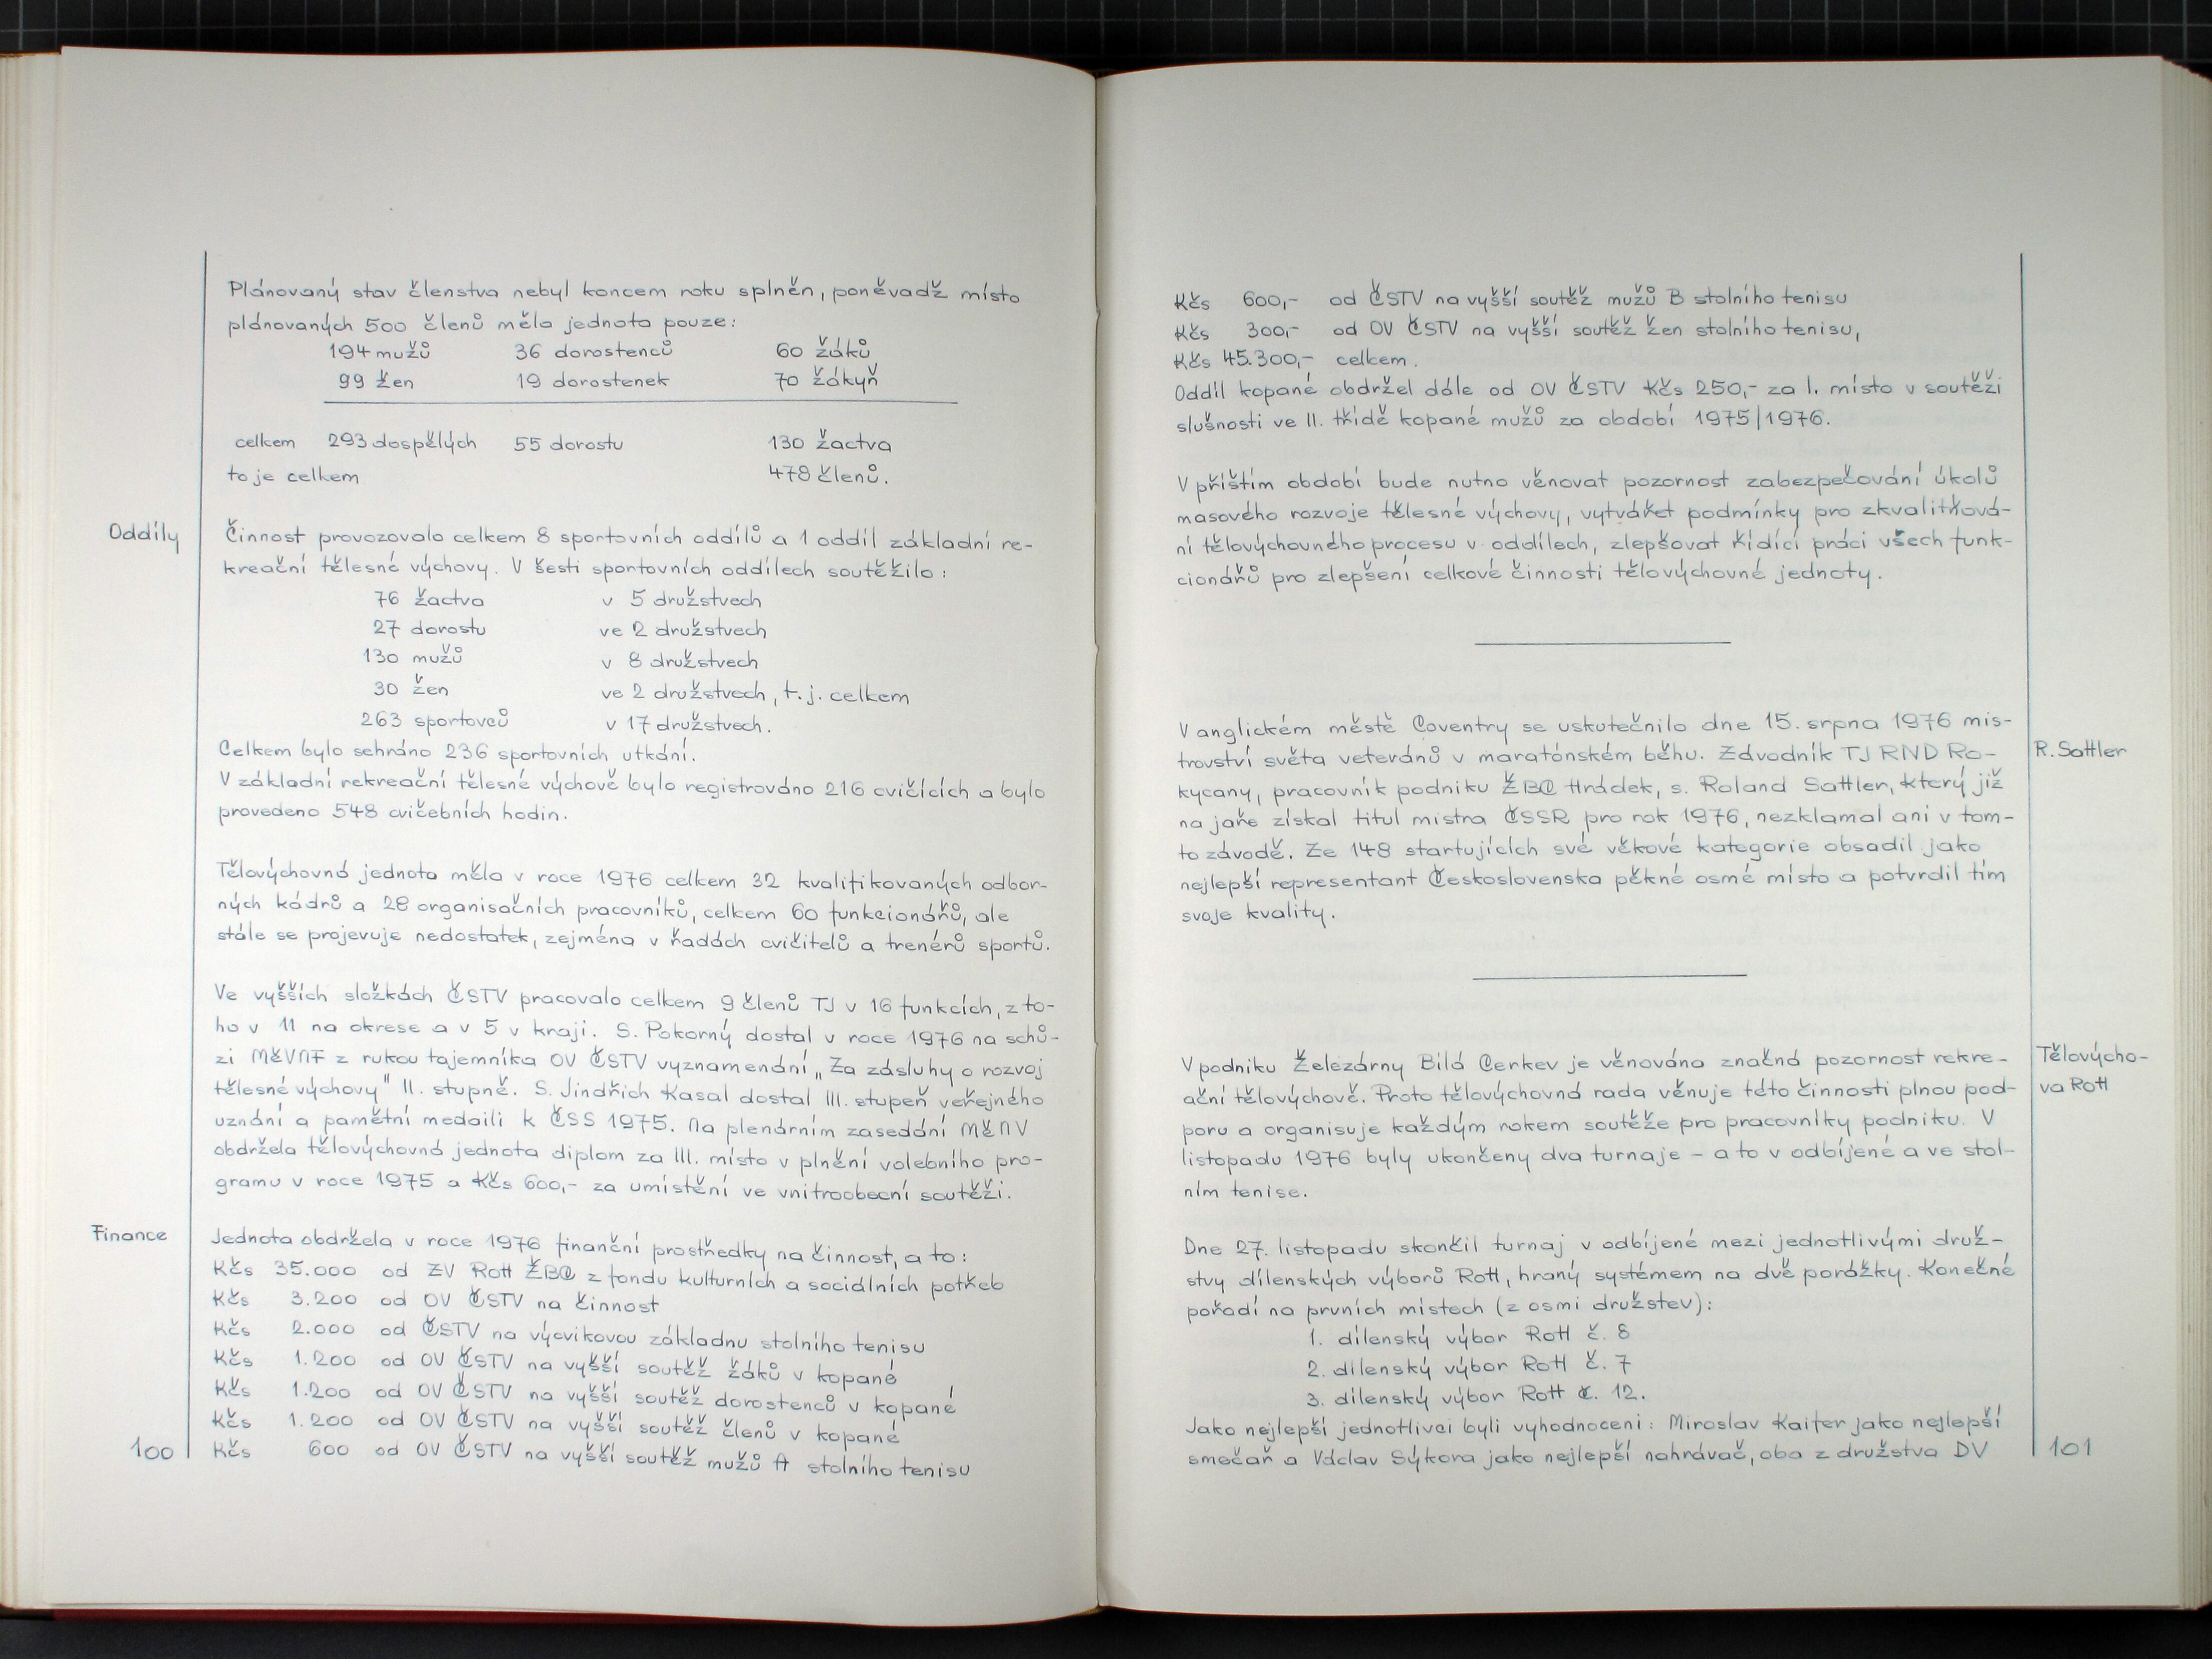 Plánovaný stav členstva nebyl koncem roku splněn, poněvadž místo
plánovaných 500 členů měla jednota pouze:
194 mužů 36 dorostenců 60 žáků
99 žen 19 dorostenek 70 žákyň
celkem 293 dospělých 55 dorostu 130 žactva
to je celkem 478 členů.
Oddíly
Činnost provozovalo celkem 8 sportovních oddílů a 1 oddíl základní re-
kreační tělesné výchovy. V šesti sportovních oddílech soutěžilo:
76 žactva v 5 družstvech
27 dorostu ve 2 družstvech
130 mužů v 8 družstvech
30 žen ve 2 družstvech, t.j. celkem
263 sportovců v 17 družstvech.
Celkem bylo sehráno 236 sportovních utkání.
V základní rekreační tělesné výchově bylo registrováno 216 cvičících a bylo
provedeno 548 cvičebních hodin.
Tělovýchovná jednota měla v roce 1976 celkem 32 kvalifikovaných odbor-
ných kádrů a 28 organisačních pracovníků, celkem 60 funkcionářů, ale
stále se projevuje nedostatek, zejména v řadách cvičitelů a trenérů sportů.
Ve vyšších složkách ČSTV pracovalo celkem 9 členů TJ v 16 funkcích, z to-
ho v 11 na okrese a v 5 v kraji. S. Pokorný dostal v roce 1976 na schů-
zi MěVNF z rukou tajemníka OV ČSTV vyznamenání „Za zásluhy o rozvoj
tělesné výchovy" II. stupně. S. Jindřich Kasal dostal III. stupeň veřejného
uznání a pamětní medaili k ČSS 1975. Na plenárním zasedání MěNV
obdržela tělovýchovná jednota diplom za III. místo v plnění volebního pro-
gramu v roce 1975 a Kčs 600,- za umístění ve vnitroobecní soutěži.
Finance
Jednota obdržela v roce 1976 finanční prostředky na činnost, a to:
Kčs 35.000 od ZV ROH ŽBC z fondu kulturních a sociálních potřeb
Kčs 3.200 od OV ČSTV na činnost
Kčs 2.000 od ČSTV na výcvikovou základnu stolního tenisu
Kčs 1.200 od OV ČSTV na vyšší soutěž žáků v kopané
Kčs 1.200 od OV ČSTV na vyšší soutěž dorostenců v kopané
Kčs 1.200 od OV ČSTV na vyšší soutěž členů v kopané
Kčs 600 od OV ČSTV na vyšší soutěž mužů A stolního tenisu
100
Kčs 600,- od ČSTV na vyšší soutěž mužů B stolního tenisu
Kčs 300,- od OV ČSTV na vyšší soutěž žen stolního tenisu,
Kčs 45.300,- celkem.
Oddíl kopané obdržel dále od OV ČSTV Kčs 250,- za I. místo v soutěži
slušnosti ve II. třídě kopané mužů za období 1975/1976.
V příštím období bude nutno věnovat pozornost zabezpečování úkolů
masového rozvoje tělesné výchovy, vytvářet podmínky pro zkvalitňová-
ní tělovýchovného procesu v oddílech, zlepšovat řídící práci všech funk-
cionářů pro zlepšení celkové činnosti tělovýchovné jednoty.
V anglickém městě Coventry se uskutečnilo dne 15. srpna 1976 mis-
trovství světa veteránů v maratónském běhu. Závodník TJ RND Ro-
kycany, pracovník podniku ŽBC Hrádek, s. Roland Sattler, který již
na jaře získal titul mistra ČSSR pro rok 1976, nezklamal ani v tom-
to závodě. Ze 148 startujících své věkové kategorie obsadil jako
nejlepší representant Československa pěkné osmé místo a potvrdil tím
svoje kvality.
R. Sattler
V podniku Železárny Bílá Cerkev je věnována značná pozornost rekre-
ační tělovýchově. Proto tělovýchovná rada věnuje této činnosti plnou pod-
poru a organisuje každým rokem soutěže pro pracovníky podniku. V
listopadu 1976 byly ukončeny dva turnaje - a to v odbíjené a ve stol-
ním tenise.
Tělovýcho-
va ROH
Dne 27. listopadu skončil turnaj v odbíjené mezi jednotlivými druž-
stvy dílenských výborů ROH, hraný systémem na dvě porážky. Konečné
pořadí na prvních místech (z osmi družstev):
1. dílenský výbor ROH č. 8
2. dílenský výbor ROH č. 7
3. dílenský výbor ROH č. 12.
Jako nejlepší jednotlivci byli vyhodnoceni: Miroslav Kaifer jako nejlepší
smečař a Václav Sýkora jako nejlepší nahrávač, oba z družstva DV
101